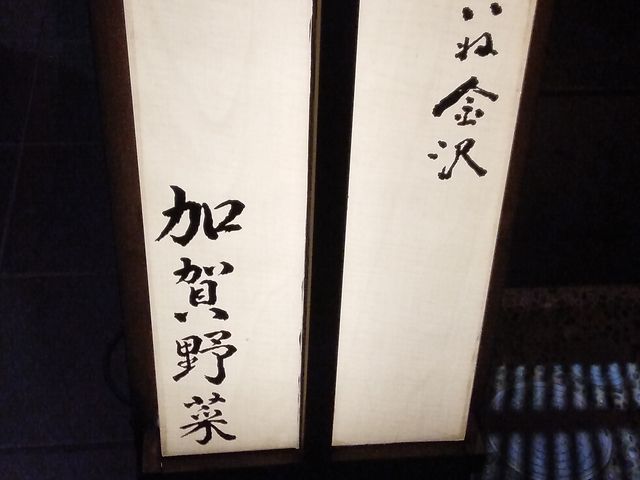 いね金沢
加賀野菜